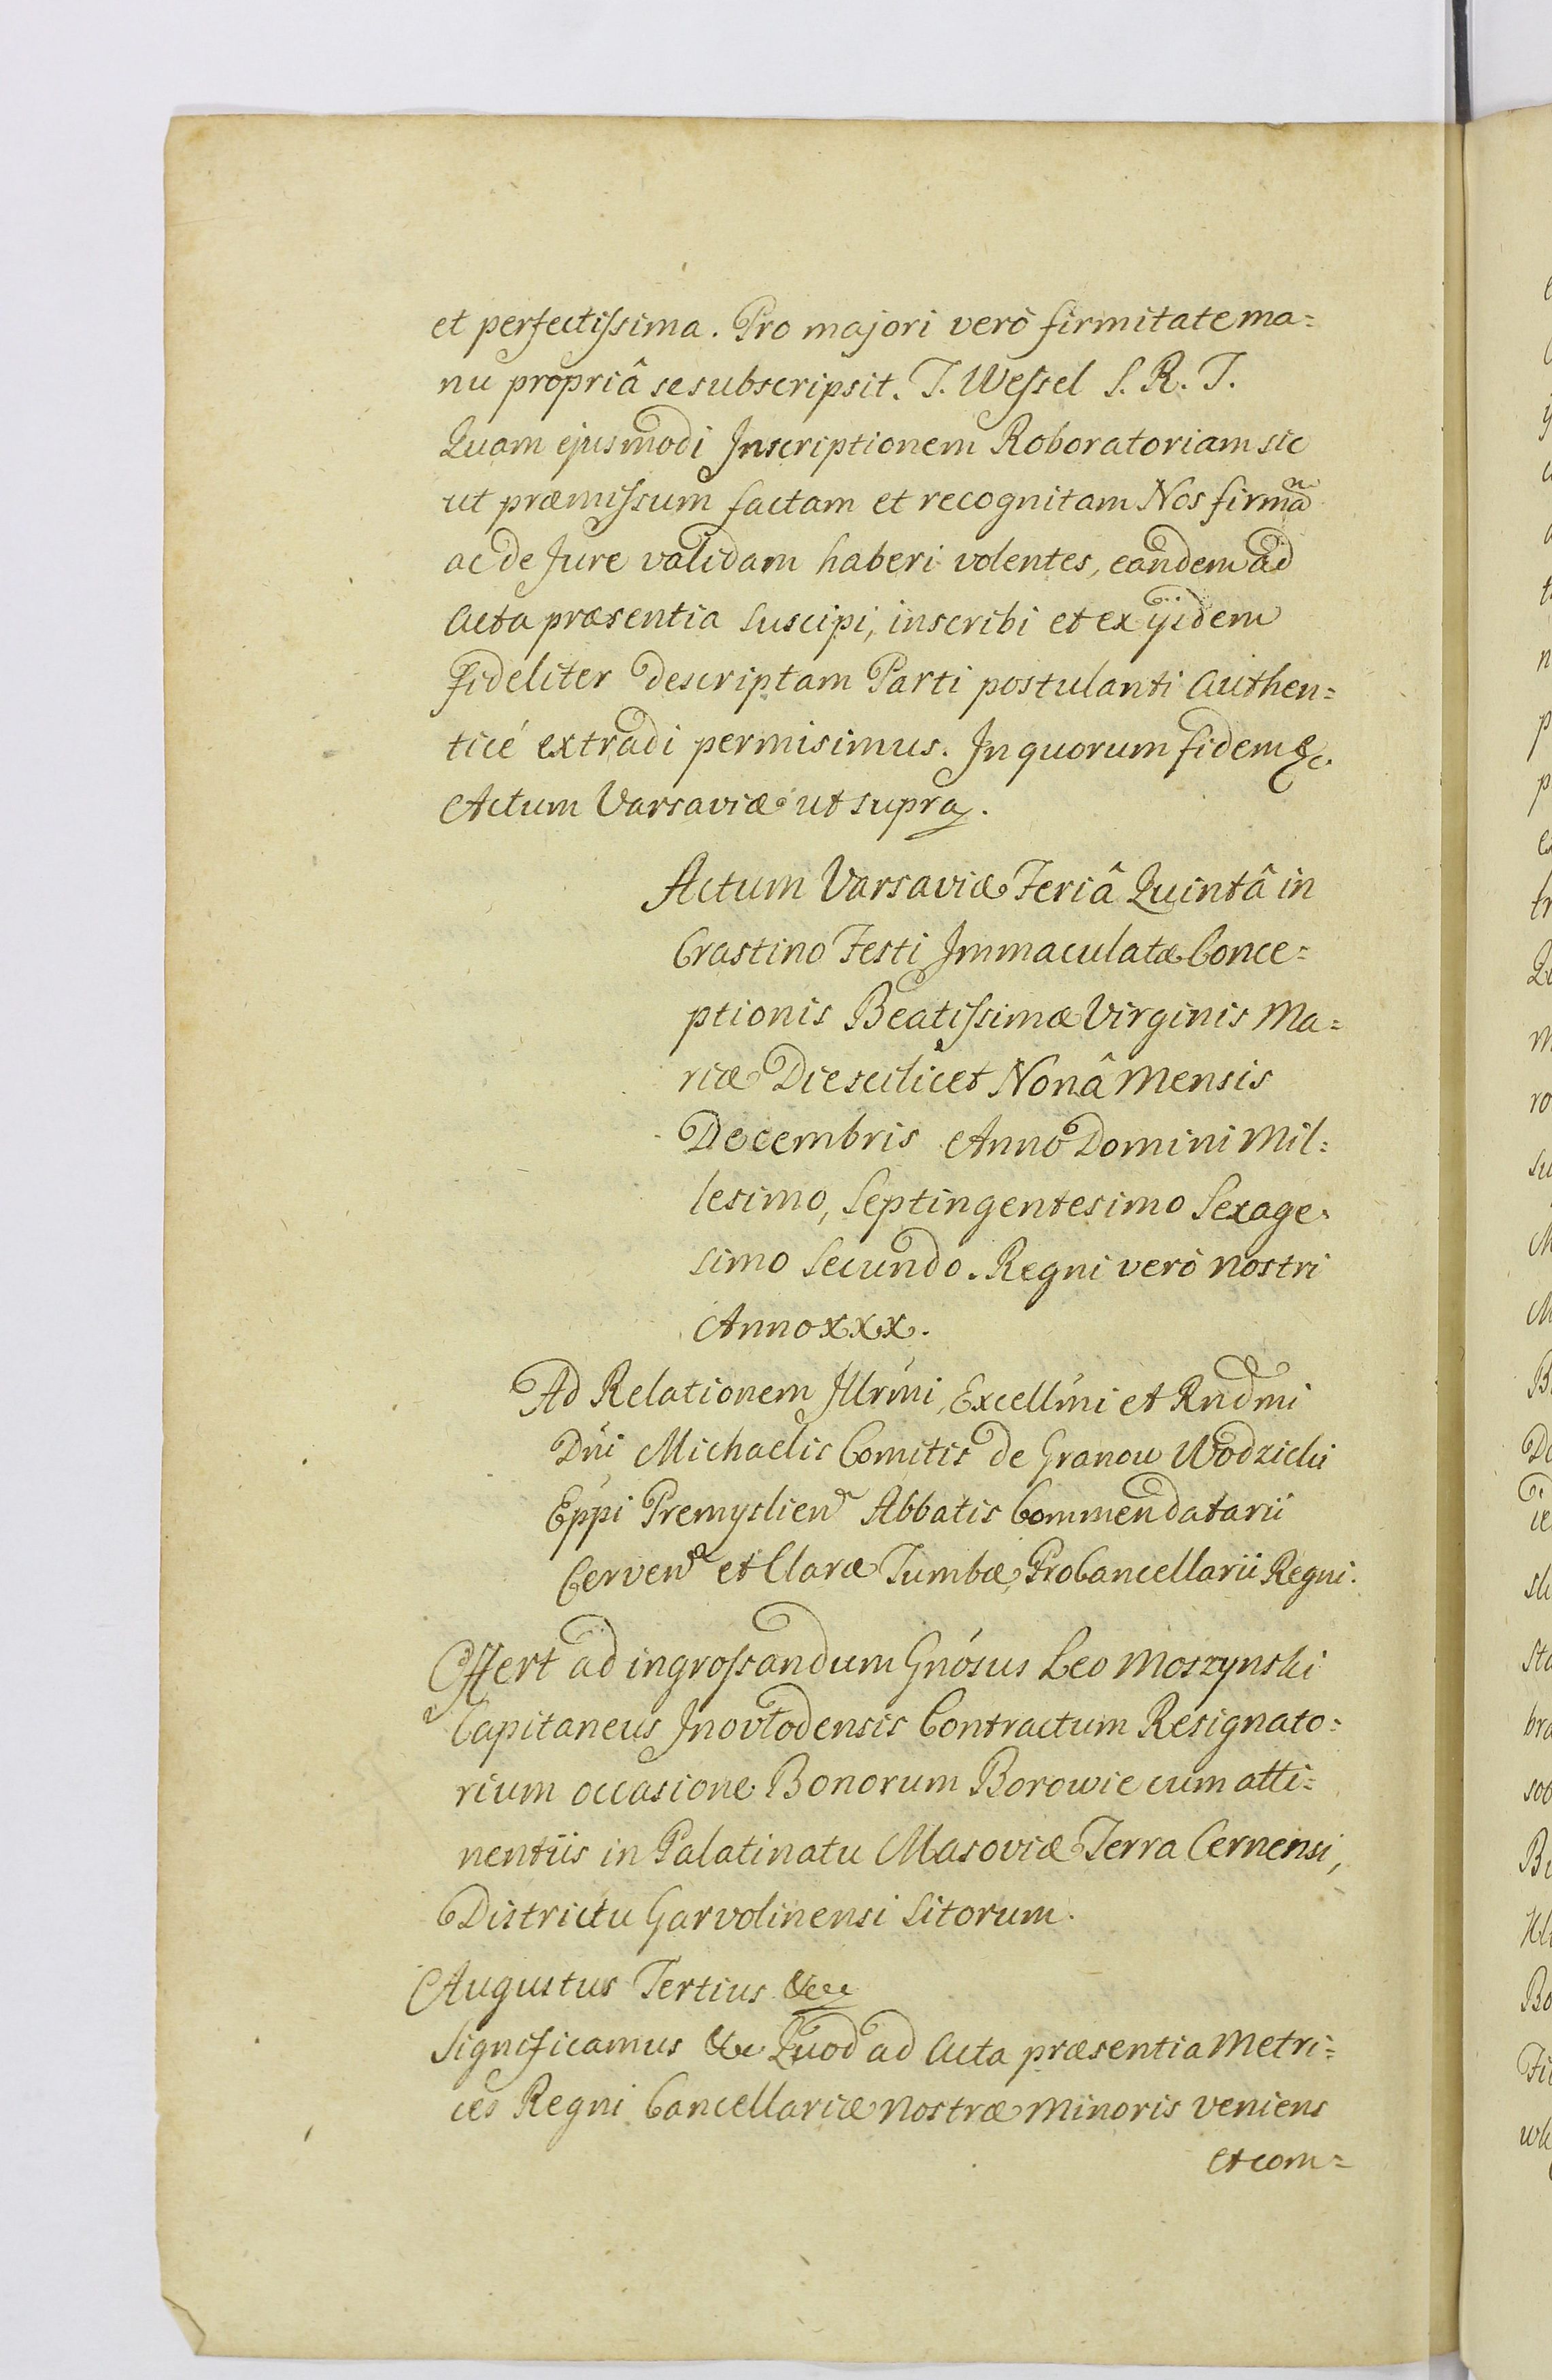 et perfectiſsima. Pro majori verò firmitate ma=
nu propriâ se subscripsit. T. Weſsel S. R. T.
Quam ejusmodi Inscriptionem Roboratoriam sic
ut præmiſsum factam et recognitam Nos firmã
ac de Jure validam haberi volentes, eandem ad
Acta præsentia suscipi, inscribi et ex ÿidem
fideliter descriptam Parti postulanti Authen=
ticé extradi permisimus. In quorum fidem &c.
Actum Varsaviæ ut supra.
Actum Varsaviæ Feriâ Quintâ in
Crastino Festi Immaculatæ Conce=
ptionis Beatiſsimæ Virginis Ma=
riæ Die scilicet Nonâ Mensis
Decembris Anno Domini Mil=
lesimo, Septingentesimo Sexage=
simo Secundo. Regni verò nostri
Anno XXX.
Ad Relationem Illrm̃i, Excellm̃i et Rndm̃i
Dñi Michaelis Comitis de Granow Wodzicki
Eppi Premyslien Abbatis Commendatarii
Cerven et Claræ Tumbæ, ProCancellarii Regni.
Offert ad ingroſsandum Gñosus Leo Moszynski
Capitaneus Inovlodensis Contractum Resignato=
rium occasione Bonorum Borowie cum atti=
nentiis in Palatinatu Masoviæ Terra Cernensi,
Districtu Garvolinensi Sitorum.
Augustus Tertius &c
Significamus &c Quod ad Acta præsentia Metri=
ces Regni Cancellariæ nostræ Minoris veniens
et com=